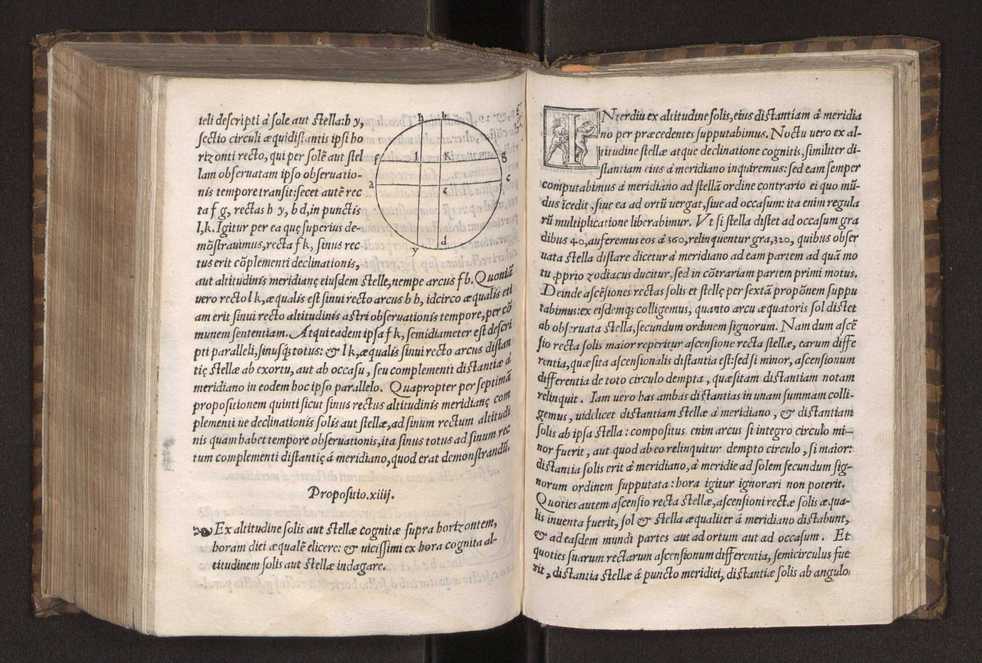 teli descripti à sole aut stella: b y,
sectio circuli æquidistanti ipsi ho
rizonti recto, qui per solē aut stel
lam obseruatam ipso obseruatio-
nis tempore transit: secet autē rec
ta f g, rectas h y, b d, in punctis
l, k. Igitur per ea quę superius de-
mōstrauimus, recta f k, sinus rec
tus erit cōplementi declinationis,
aut altitudinis meridianę eiusdem stellę, nempe arcus f b. Quoniā
uero recto l k, æqualis est sinui recto arcus b h, idcirco æqualis eti
am erit sinui recto altitudinis astri obseruationis tempore, per cō
munem sententiam. Atqui eadem ipsa f k, semidiameter est descri
pti paralleli, sinusq́; totus: & l k, æqualis sinui recto arcus distan
tię stellæ ab exortu, aut ab occasu, seu complementi distantiæ à
meridiano in eodem hoc ipso parallelo. Quapropter per septimā
propositionem quinti sicut sinus rectus altitudinis meridianę, com
plementi ue declinationis solis aut stellæ, ad sinum rectum altitudi
nis quam habet tempore obseruationis, ita sinus totus ad sinum rec
tum complementi distantię à meridiano, quod erat demonstrandū.
Propositio. xiiij.
Ex altitudine solis aut stellæ cognitæ supra horizontem,
horam diei æqualē elicere: & uicissimi ex hora cognita al-
titudinem solis aut stellæ indagare.
h b
f l k g
a e c
y d
INterdiu ex altitudine solis, eius distantiam à meridia
no per præcedentes supputabimus. Noctu uero ex al-
titudine stellæ atque declinatione cognitis, similiter di-
stantiam eius à meridiano inquiremus: sed eam semper
computabimus à meridiano ad stellā ordine contrario ei quo mū-
dus icedit, siue ea ad ortū uergat, siue ad occasum: ita enim regula
rū multiplicatione liberabimur. Vt si stella distet ad occasum gra
dibus 40, auferemus eos à 360, relinquentur gra, 320, quibus obser
uata stella distare dicetur à meridiano ad eam partem ad quā mo
tu ꝓprio zodiacus ducitur, sed in cōtrariam partem primi motus.
Deinde ascēsiones rectas solis et stellę per sextā propōnem suppu
tabimus: ex eisdemq́; colligemus, quanto arcu æquatoris sol distet
ab obseruata stella, secundum ordinem signorum. Nam dum ascē
sio recta solis maior reperitur ascensione recta stellæ, earum diffe
rentia, quæsita ascensionalis distantia est: sed si minor, ascensionum
differentia de toto circulo dempta, quæsitam distantiam notam
relinquit. Iam uero has ambas distantias in unam summam colli-
gemus, uidelicet distantiam stellæ à meridiano, & distantiam
solis ab ipsa stella: compositus enim arcus si integro circulo mi-
nor fuerit, aut quod ab eo relinquitur dempto circulo, si maior:
distantia solis erit à meridiano, à meridie ad solem secundum sig-
norum ordinem supputata: hora igitur ignorari non poterit.
Quoties autem ascensio recta stellæ, ascensioni rectæ solis æqua-
lis inuenta fuerit, sol & stella æqualiter à meridiano distabunt,
& ad easdem mundi partes aut ad ortum aut ad occasum. Et
quoties suarum rectarum ascensionum differentia, semicirculus fue
rit, distantia stellæ à puncto meridiei, distantiæ solis ab angulo